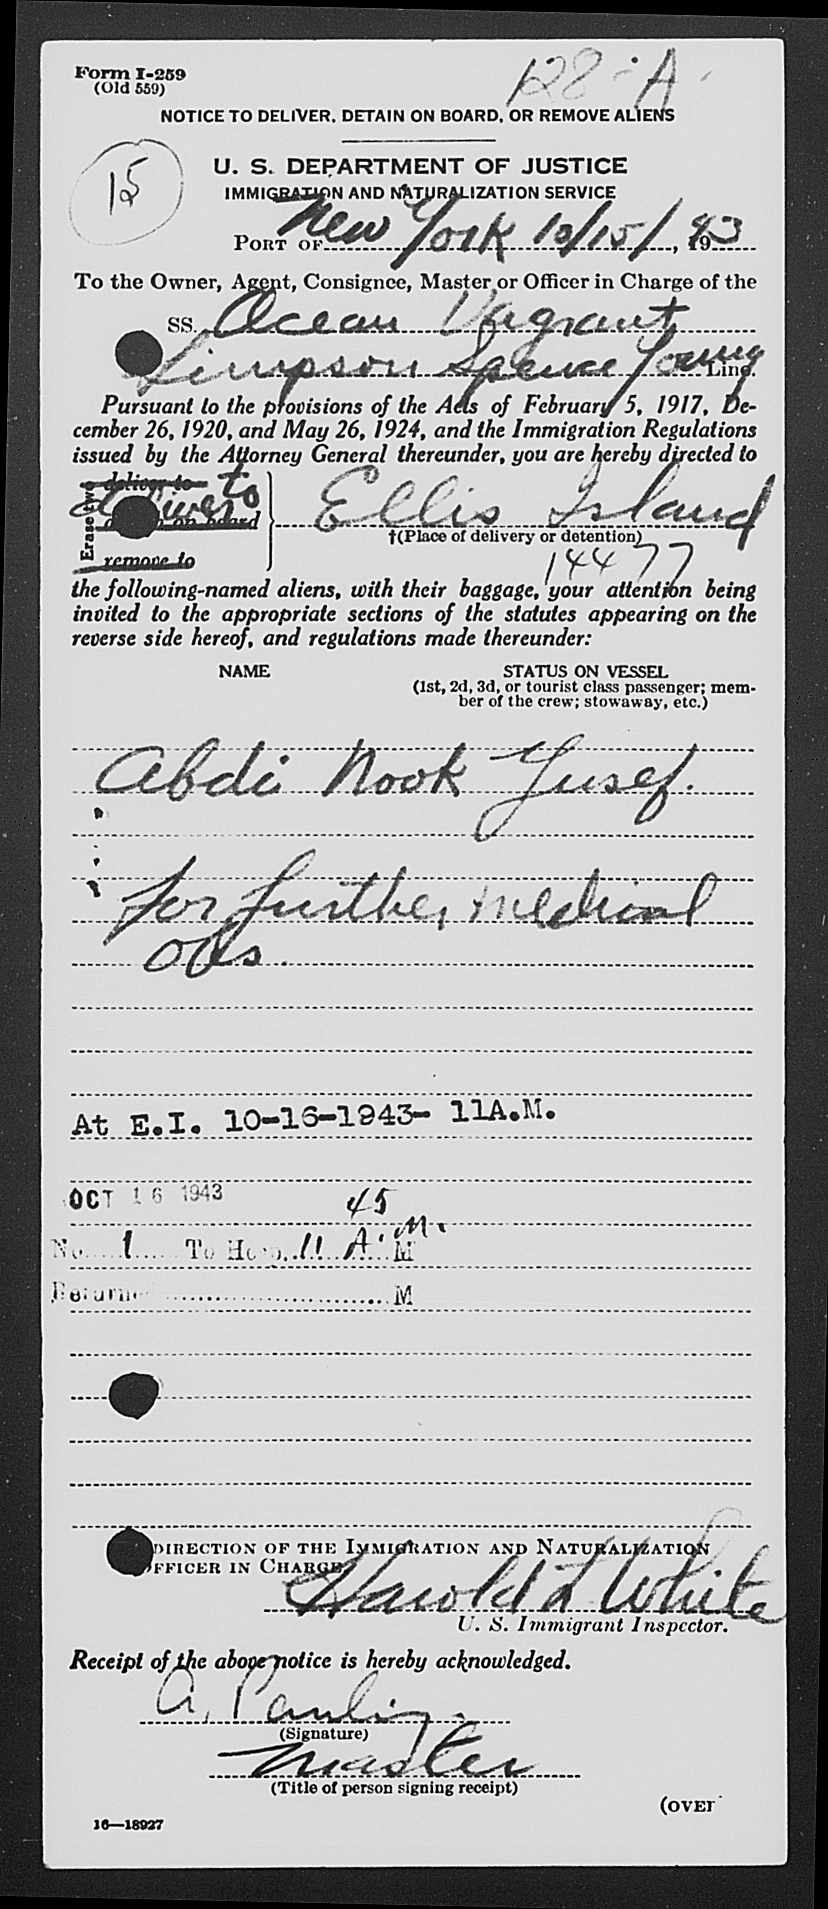 Form I-259
(Old 559)
128-A
NOTICE TO DELIVER, DETAIN ON BOARD, OR REMOVE ALIENS
15
U. S. DEPARTMENT OF JUSTICE
IMMIGRATION AND NATURALIZATION SERVICE
PORT OF New York 10/15/, 1943
To the Owner, Agent, Consignee, Master or Officer in Charge of the
SS. Ocean Vagrant
Simpson Spence Young Line.
Pursuant to the provisions of the Acts of February 5, 1917, De-
cember 26, 1920, and May 26, 1924, and the Immigration Regulations
issued by the Attorney General thereunder, you are hereby directed to
Erase two
deliver to
deliver to
on board
remove to
Ellis Island
†(Place of delivery or detention)
14477
the following-named aliens, with their baggage, your attention being
invited to the appropriate sections of the statutes appearing on the
reverse side hereof, and regulations made thereunder:
NAME STATUS ON VESSEL
(1st, 2d, 3d, or tourist class passenger; mem-
ber of the crew; stowaway, etc.)
Abdi Nook Yusef.
for further medical
obs.
At E.I. 10-16-1943- 11A.M.
OCT 16 1943
45
No. 1 To Hosp. 11 A. M. M
Returned M
DIRECTION OF THE IMMIGRATION AND NATURALIZATION
OFFICER IN CHARGE
Harold L White
U. S. Immigrant Inspector.
Receipt of the above notice is hereby acknowledged.
A.
(Signature)
Master
(Title of person signing receipt)
(OVER
16—18927